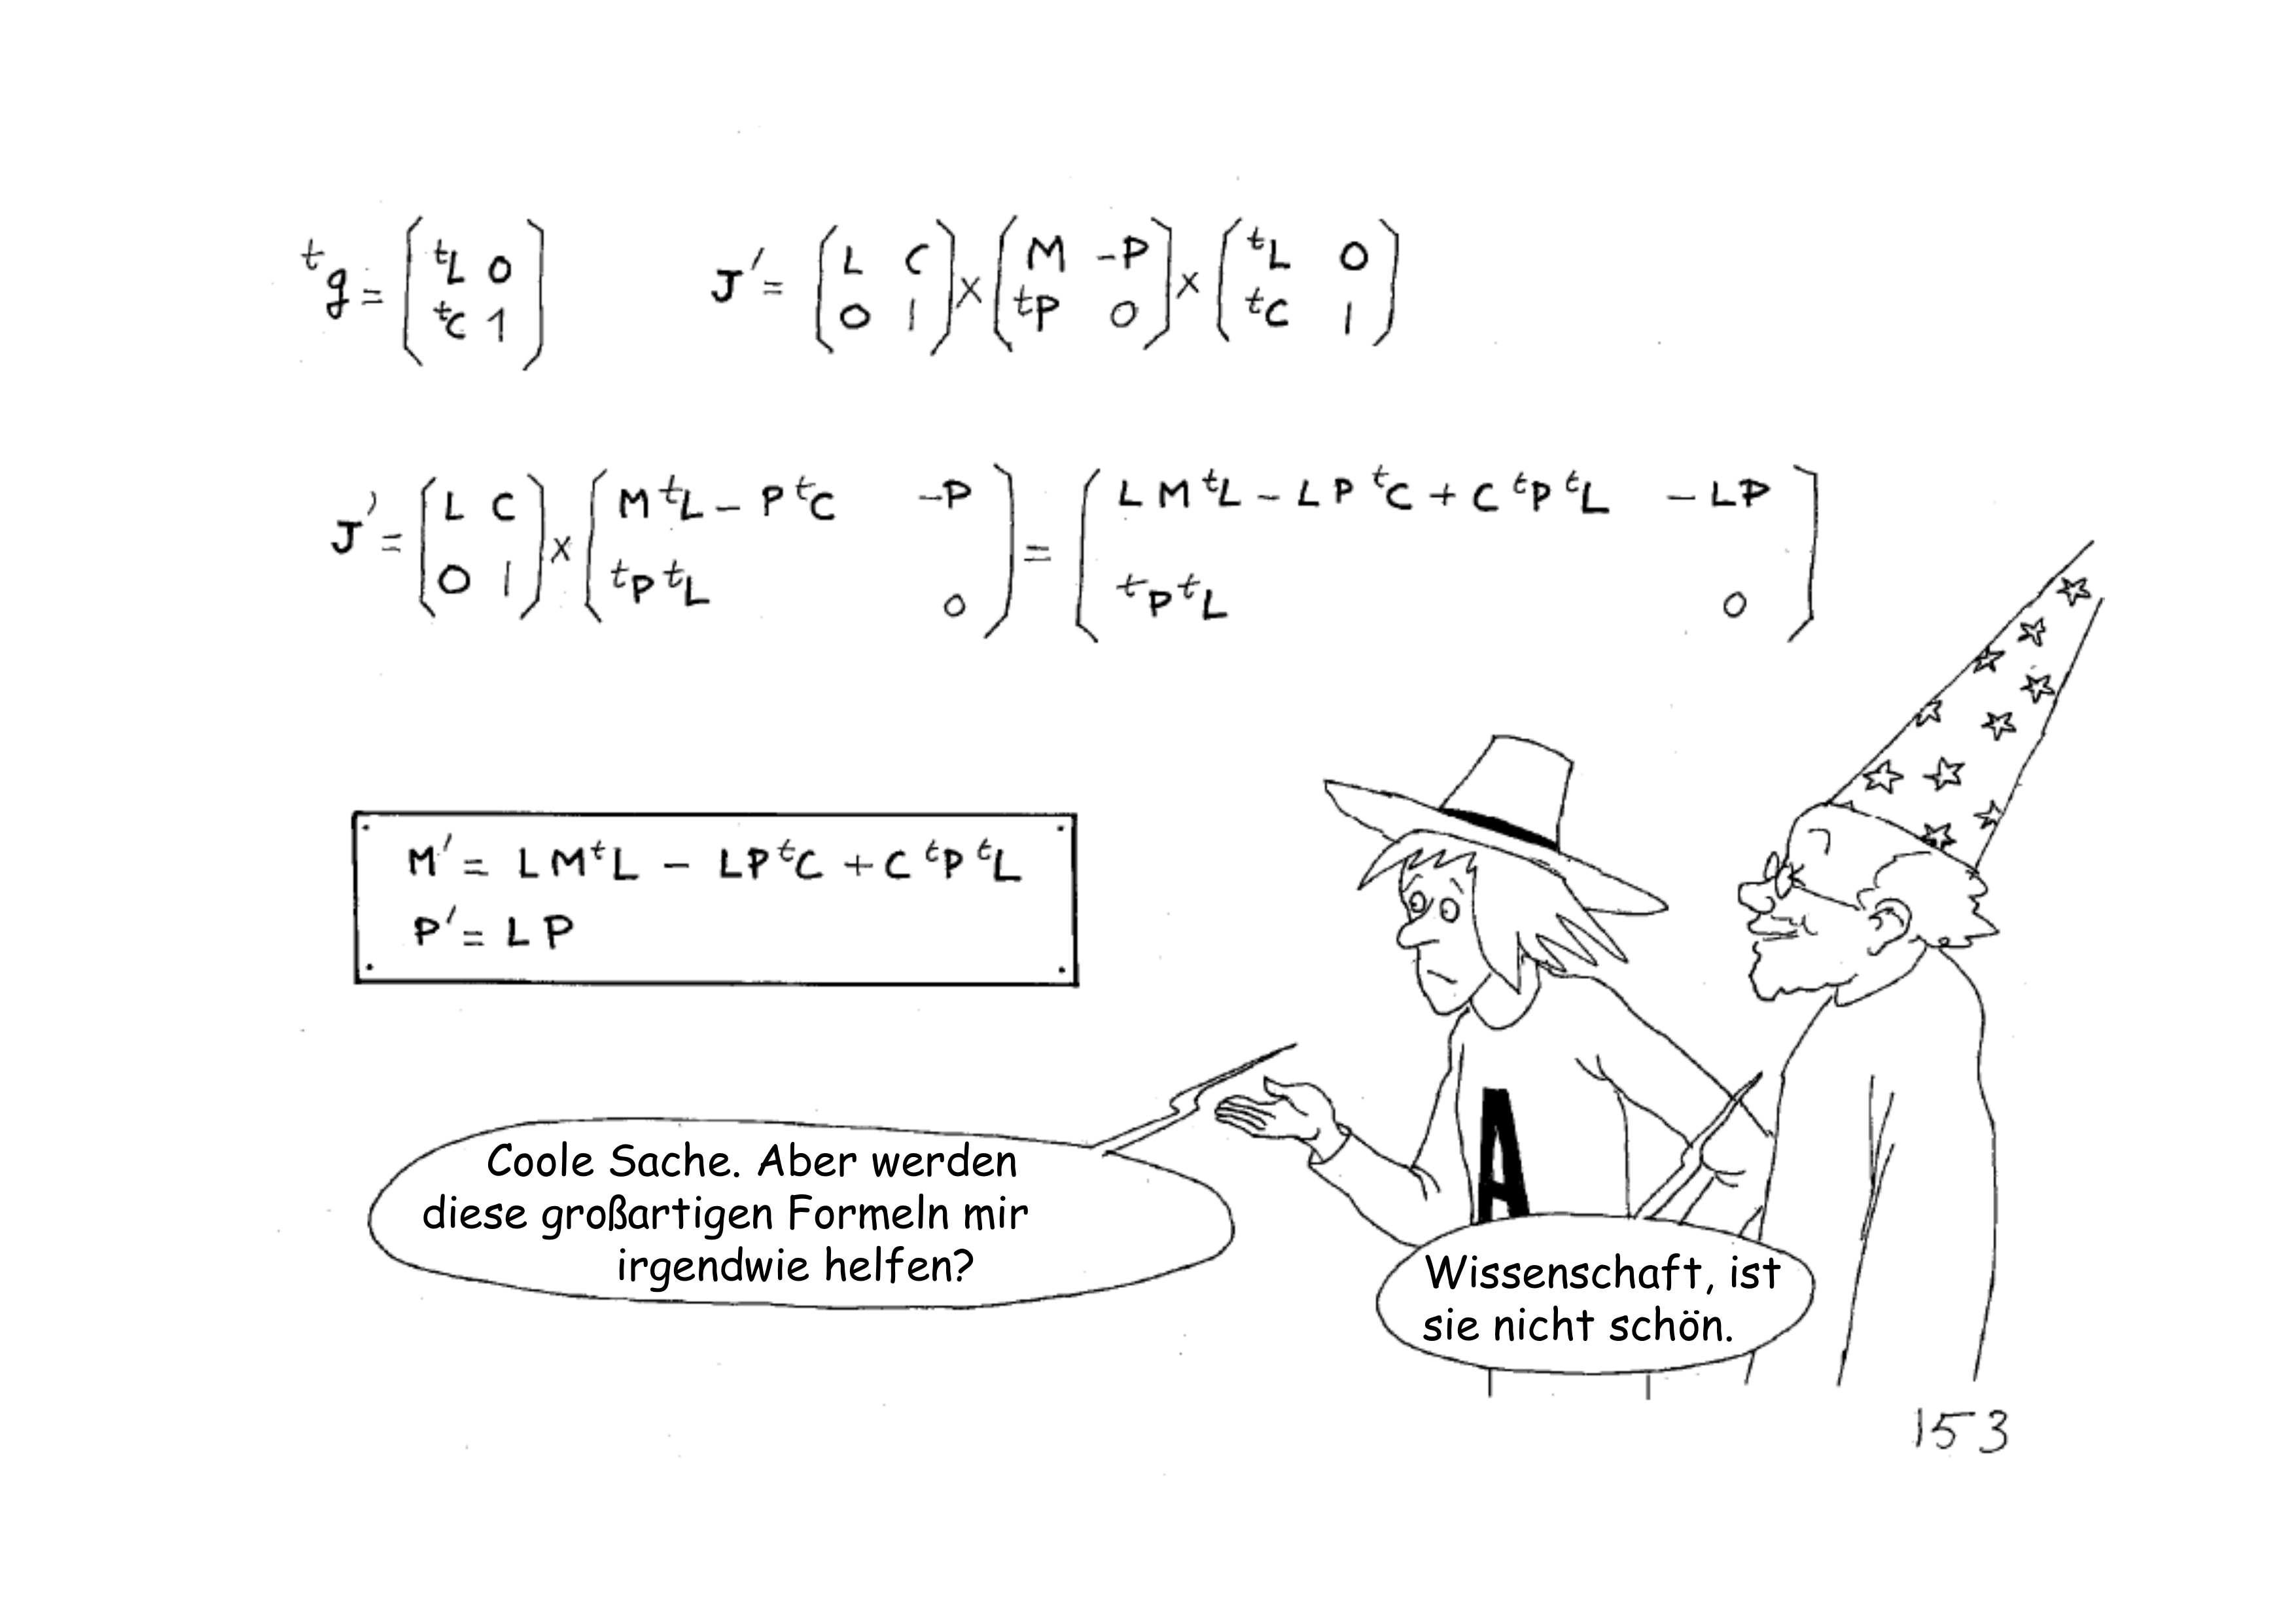 ᵗg = ( ᵗL 0 ; ᵗC 1 )    J′ = ( L C ; 0 1 ) × ( M -P ; ᵗP 0 ) × ( ᵗL 0 ; ᵗC 1 )
J′ = ( L C ; 0 1 ) × ( M ᵗL - P ᵗC  -P ; ᵗP ᵗL  0 ) = ( L M ᵗL - L P ᵗC + C ᵗP ᵗL  - L P ; ᵗP ᵗL  0 )
M′ = L M ᵗL - L P ᵗC + C ᵗP ᵗL
P′ = L P
A
Coole Sache. Aber werden
diese großartigen Formeln mir
irgendwie helfen?
Wissenschaft, ist
sie nicht schön.
153